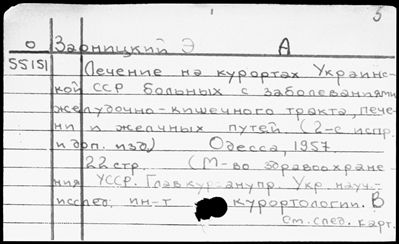 5
О Зарницкий Э А
55151 Лечение на курортах Украинс-
кой ССР больных с заболеваниями
желудочно-кишечного тракта, пече-
ни и желчных путей. (2-е испр.
и доп. изд) Одесса, 1957.
22 стр. (М-во здравоохране-
ния УССР. Главкур-анупр. Укр. науч.-
исслед. ин-т курортологии. В
см. след. карт.